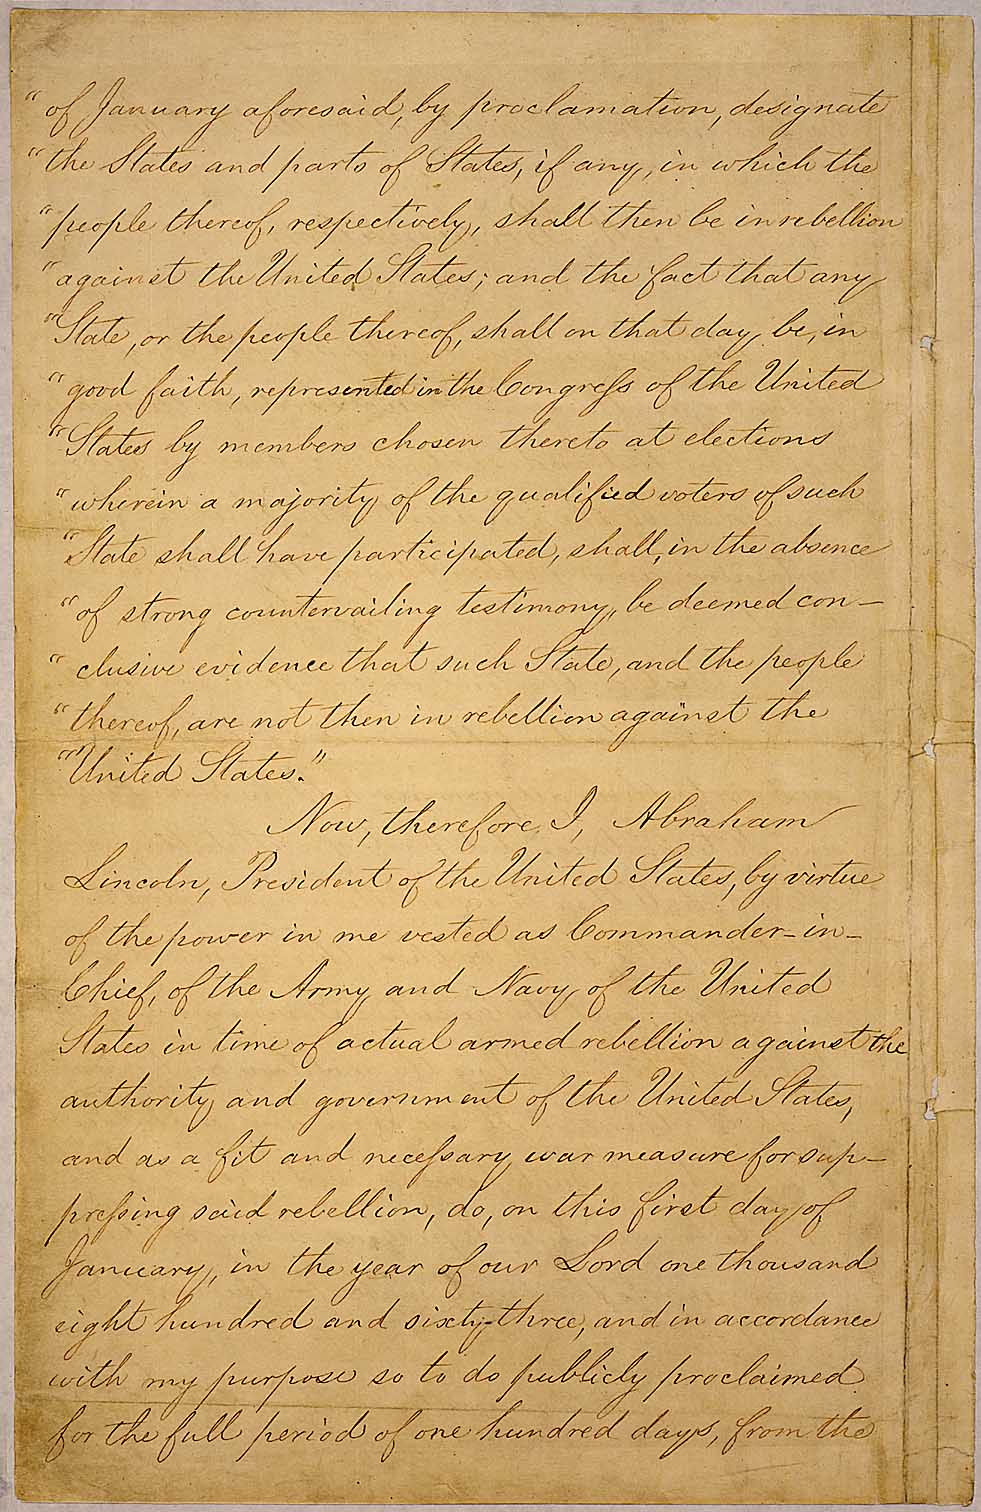 “ of January aforesaid, by proclamation, designate
“ the States and parts of States, if any, in which the
“ people thereof, respectively, shall then be in rebellion
“ against the United States; and the fact that any
“ State, or the people thereof, shall on that day be, in
“ good faith, represented in the Congress of the United
“ States by members chosen thereto at elections
“ wherein a majority of the qualified voters of such
“ State shall have participated, shall, in the absence
“ of strong countervailing testimony, be deemed con-
“ clusive evidence that such State, and the people
“ thereof, are not then in rebellion against the
“ United States.”
Now, therefore I, Abraham
Lincoln, President of the United States, by virtue
of the power in me vested as Commander-in-
Chief, of the Army and Navy of the United
States in time of actual armed rebellion against the
authority and government of the United States,
and as a fit and necessary war measure for sup-
pressing said rebellion, do, on this first day of
January, in the year of our Lord one thousand
eight hundred and sixty-three, and in accordance
with my purpose so to do publicly proclaimed
for the full period of one hundred days, from the